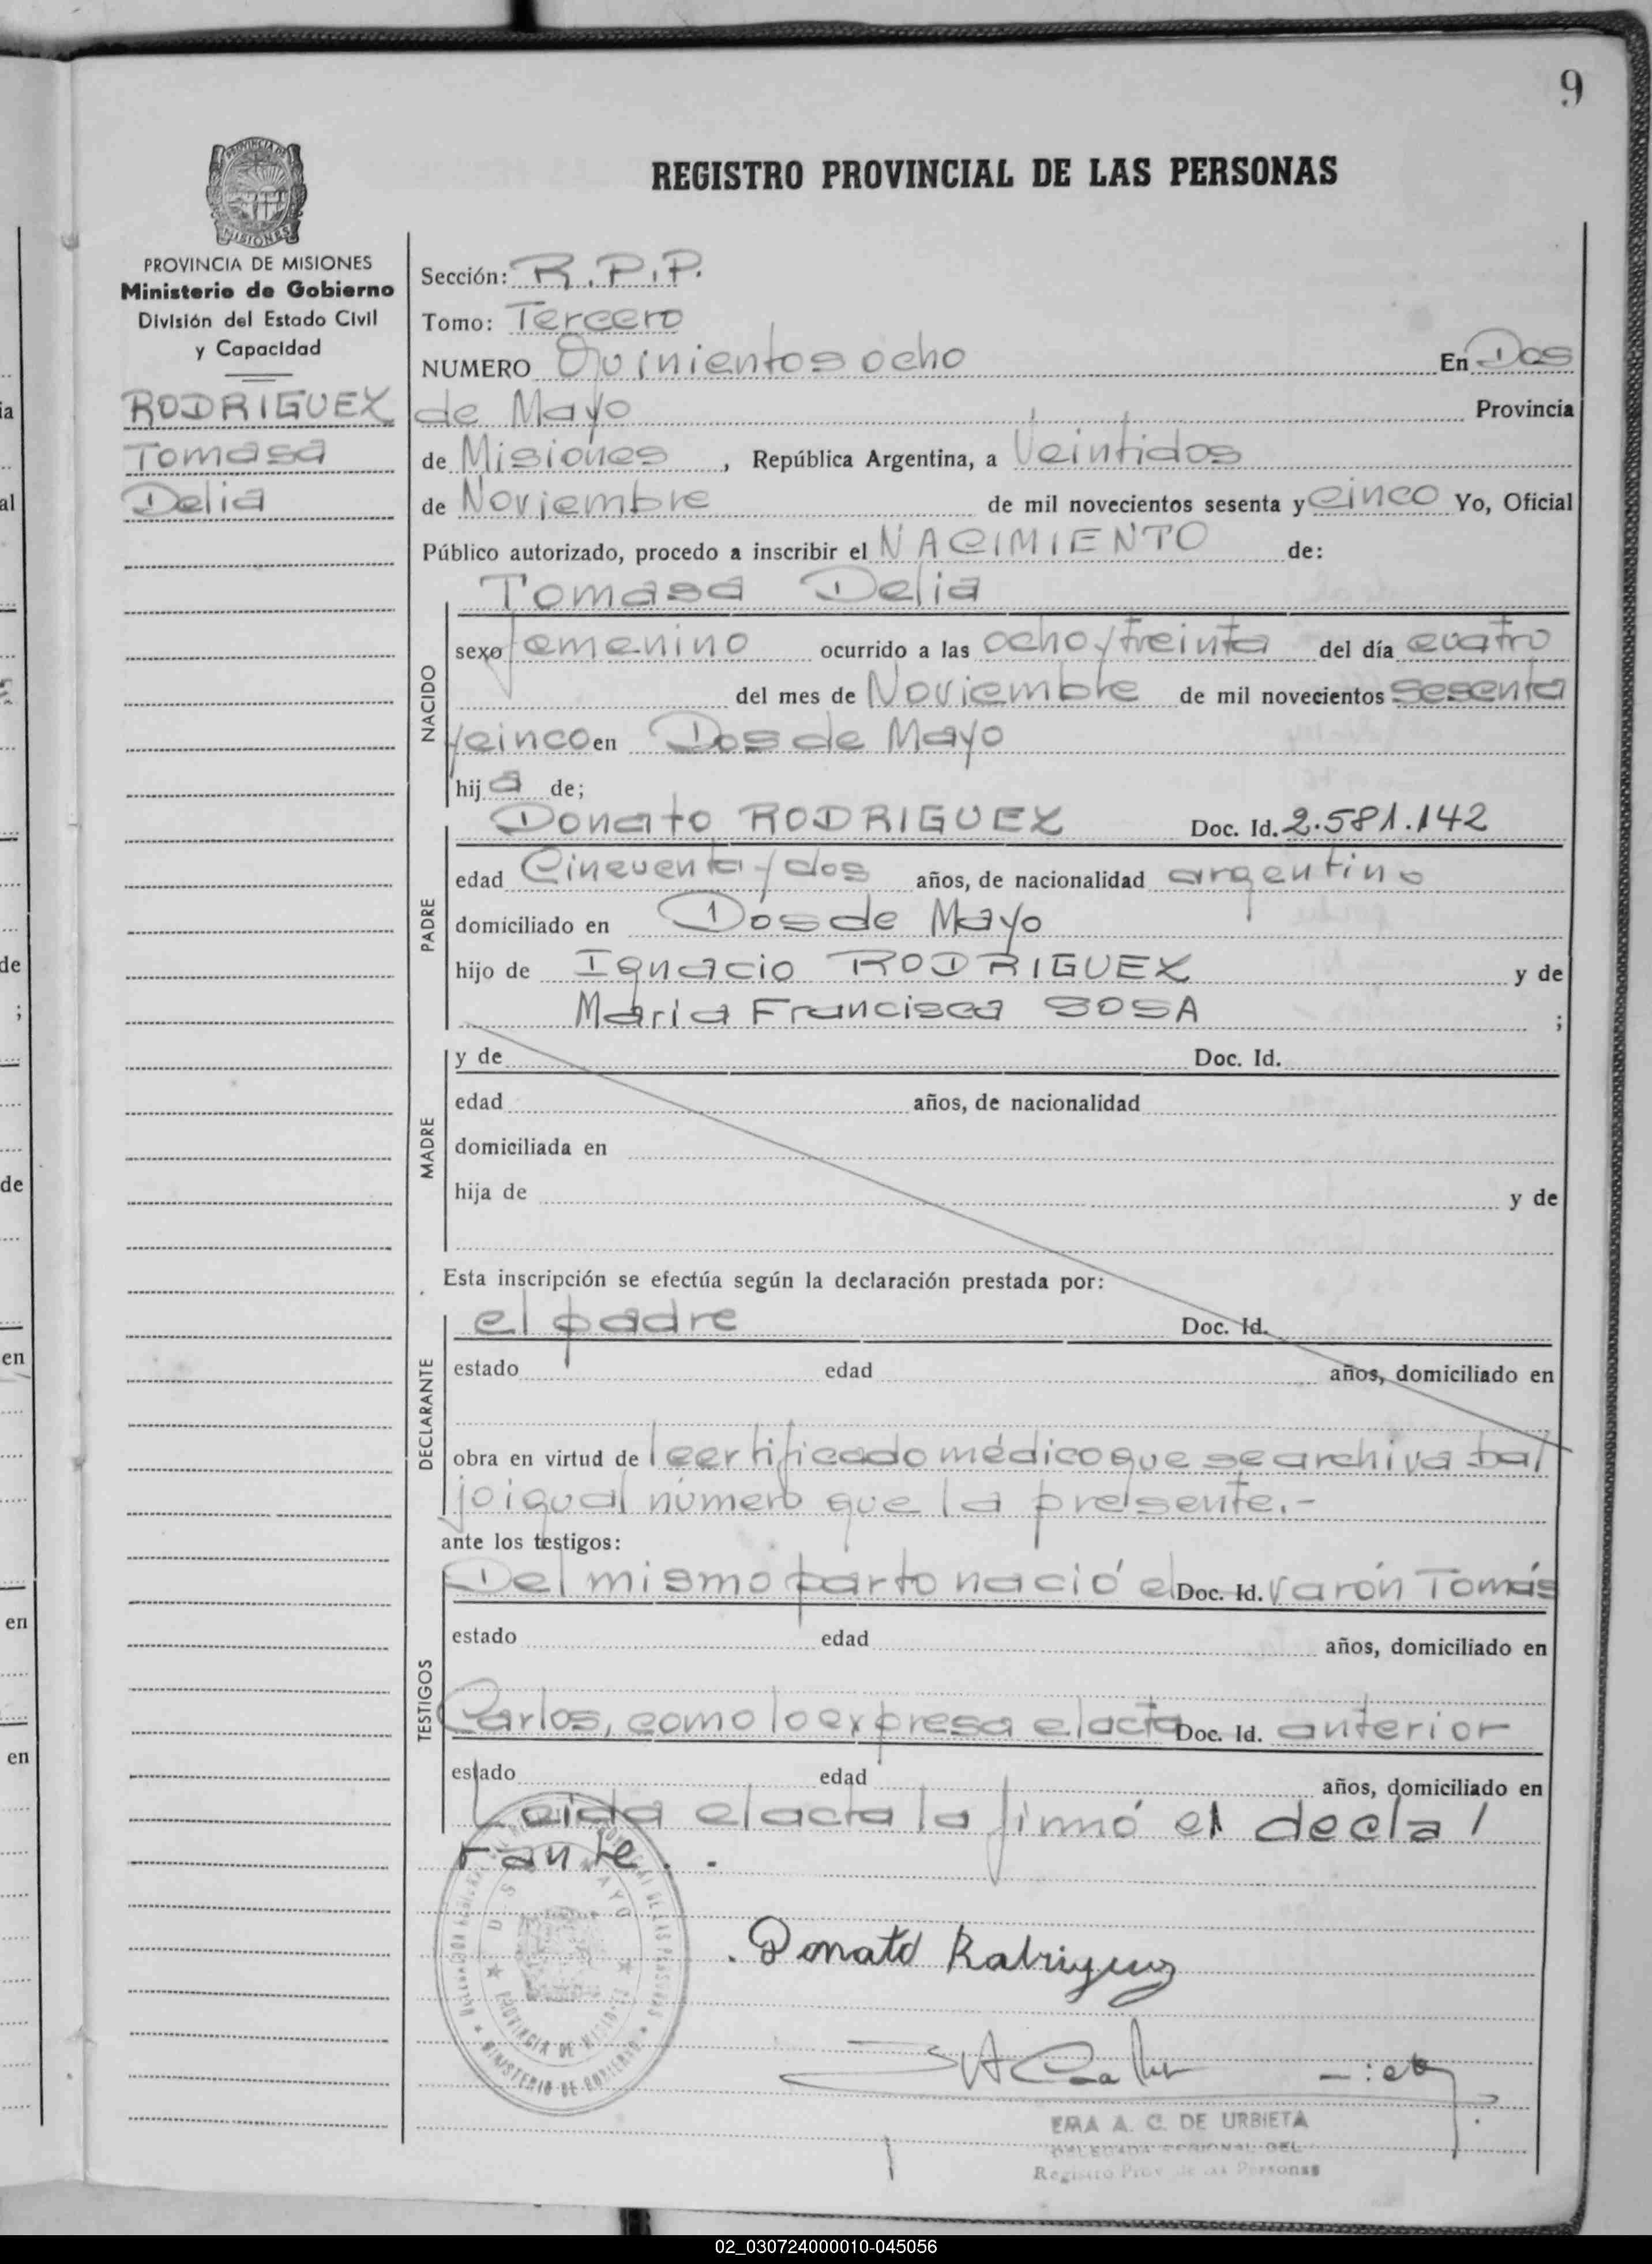 9
REGISTRO PROVINCIAL DE LAS PERSONAS
PROVINCIA DE MISIONES
PROVINCIA DE MISIONES
Ministerio de Gobierno
División del Estado Civil
y Capacidad
RODRIGUEZ
Tomasa
Delia
Sección: R.P.P.
Tomo: Tercero
NUMERO Quinientos ocho En Dos
de Mayo Provincia
de Misiones, República Argentina, a Veintidos
de Noviembre de mil novecientos sesenta y cinco Yo, Oficial
Público autorizado, procedo a inscribir el NACIMIENTO de:
Tomasa Delia
NACIDO
sexo femenino ocurrido a las ocho y treinta del día cuatro
del mes de Noviembre de mil novecientos sesenta
y cinco en Dos de Mayo
hija de;
PADRE
Donato RODRIGUEZ Doc. Id. 2.581.142
edad Cincuenta y dos años, de nacionalidad argentino
domiciliado en Dos de Mayo
hijo de Ignacio RODRIGUEZ y de
María Francisca SOSA ;
MADRE
y de Doc. Id.
edad años, de nacionalidad
domiciliada en
hija de y de
Esta inscripción se efectúa según la declaración prestada por:
DECLARANTE
el padre Doc. Id.
estado edad años, domiciliado en
obra en virtud de l certificado médico que se archiva ba/
jo igual número que la presente.-
ante los testigos:
TESTIGOS
Del mismo parto nació el Doc. Id. varón Tomás
estado edad años, domiciliado en
Carlos, como lo expresa el acta Doc. Id. anterior
estado edad años, domiciliado en
Leida el acta la firmó el decla/
rante.-
Donato Rodriguez
PROVINCIA DE MISIONES
MINISTERIO DE GOBIERNO
DE LAS PERSONAS
EMA A. C. DE URBIETA
DELEGADA REGIONAL DEL
Registro Prov. de las Personas
ia
al
de
;
de
en
en
en
02_030724000010-045056